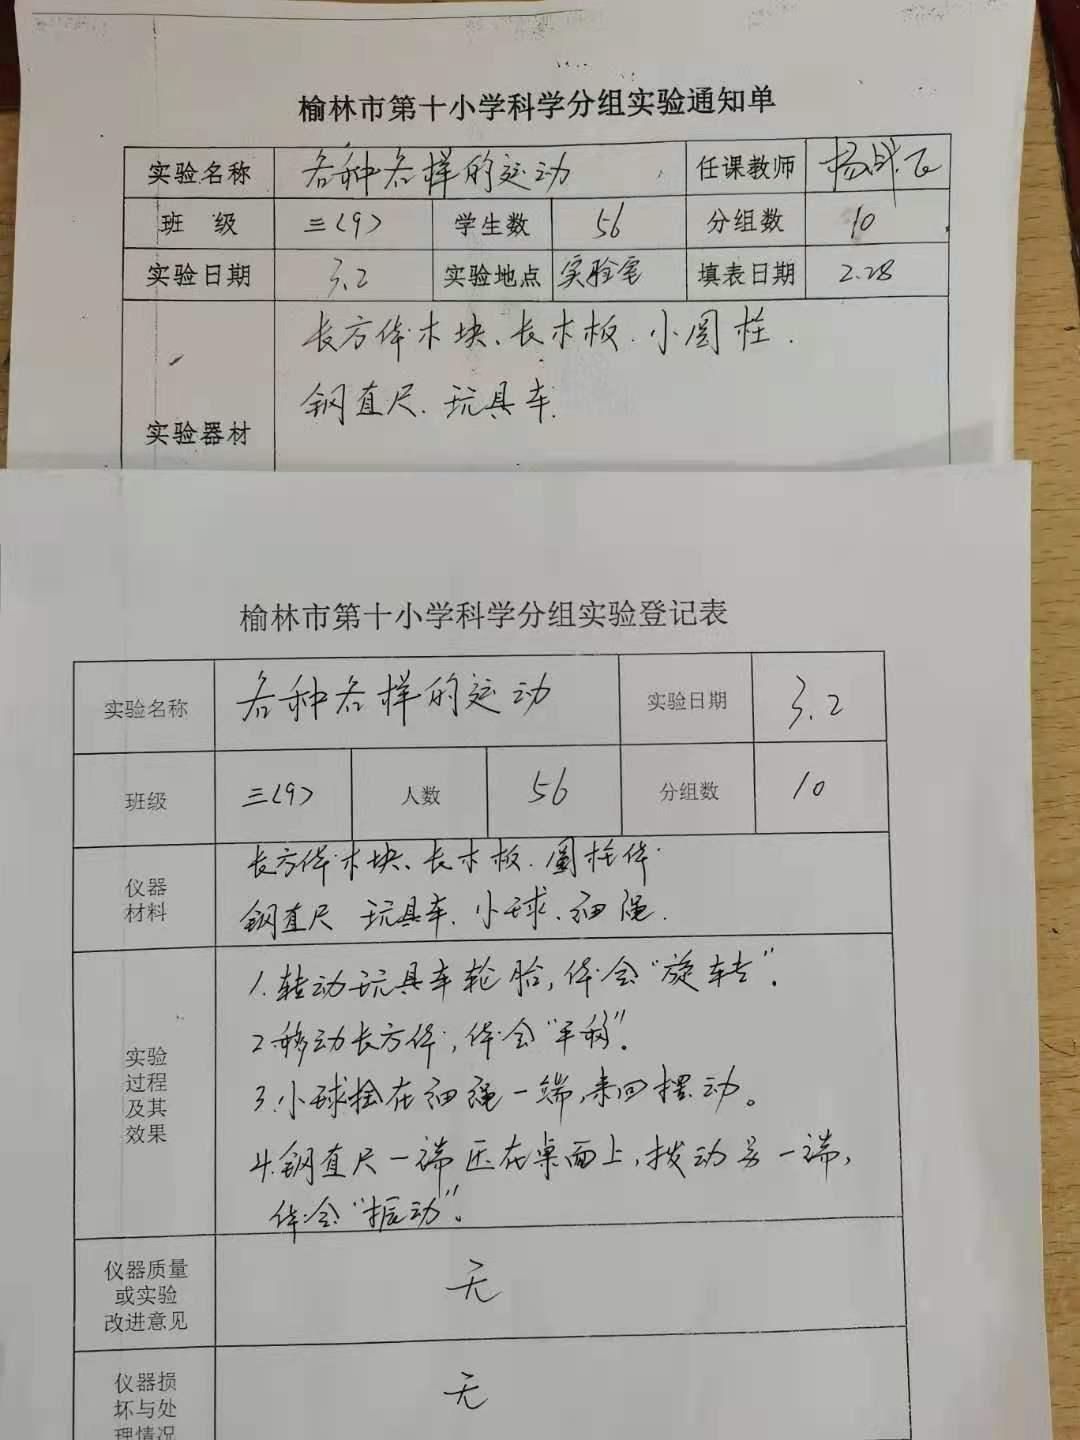 榆林市第十小学科学分组实验通知单
实验名称 各种各样的运动 任课教师 杨战飞
班 级 三(9) 学生数 56 分组数 10
实验日期 3.2 实验地点 实验室 填表日期 2.28
长方体木块、长木板、小圆柱、
钢直尺、玩具车
实验器材
榆林市第十小学科学分组实验登记表
实验名称 各种各样的运动 实验日期 3.2
班级 三(9) 人数 56 分组数 10
仪器
材料
长方体木块、长木板、圆柱体
钢直尺 玩具车、小球、细绳.
实验
过程
及其
效果
1.转动玩具车轮胎,体会“旋转”.
2.移动长方体,体会“平移”.
3.小球拴在细绳一端,来回摆动。
4.钢直尺一端压在桌面上,拨动另一端,
体会“振动”.
仪器质量
或实验
改进意见
无
仪器损
坏与处
理情况
无